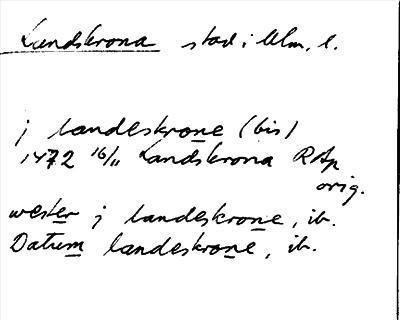 Landskrona stad i Mlm. l.
j landeskrone (bis)
1472 16/11 Landskrona RAp
orig.
wester j landeskrone, ib.
Datum landeskrone, ib.